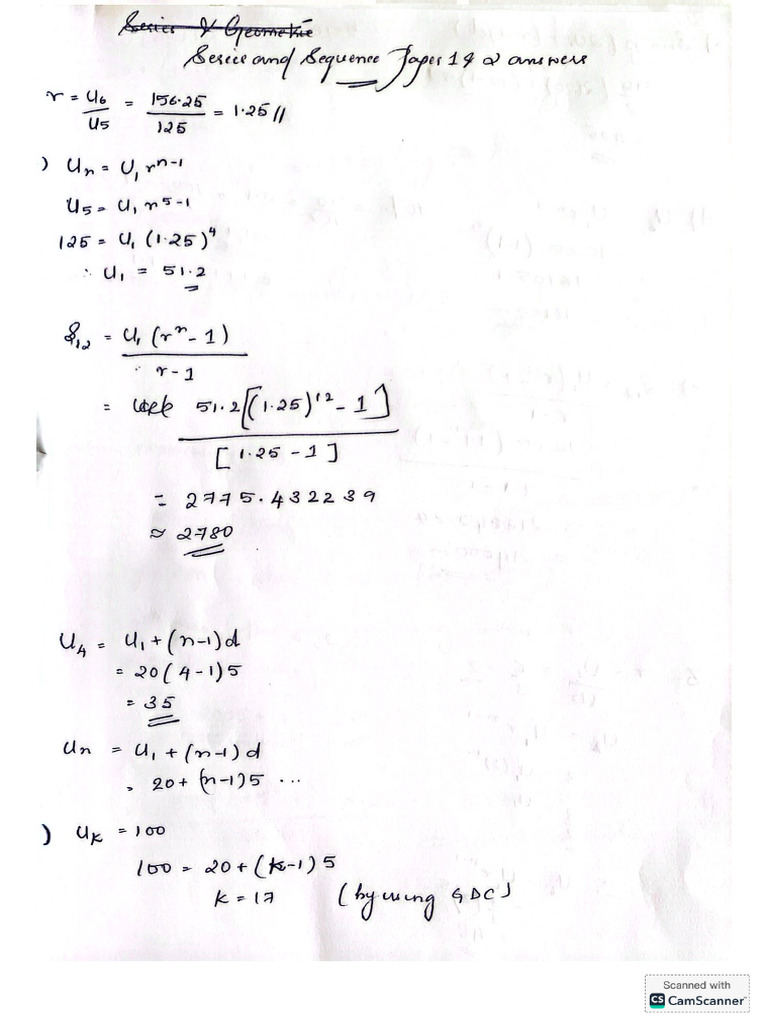 Series & Geometric
Series and Sequence Paper 1 & 2 answers
r = U6/U5 = 156.25/125 = 1.25 //
) Un = U1 r^n-1
U5 = U1 r^5-1
125 = U1 (1.25)^4
∴ U1 = 51.2
S12 = U1 (r^n - 1) / r - 1
= 51.2[(1.25)^12 - 1] / [1.25 - 1]
= 2775.432239
≈ 2780
U4 = U1 + (n-1)d
= 20(4-1)5
= 35
Un = U1 + (n-1)d
= 20 + (n-1)5 ...
) Uk = 100
100 = 20 + (k-1)5
k = 17 (by using GDC)
Scanned with
CS CamScanner